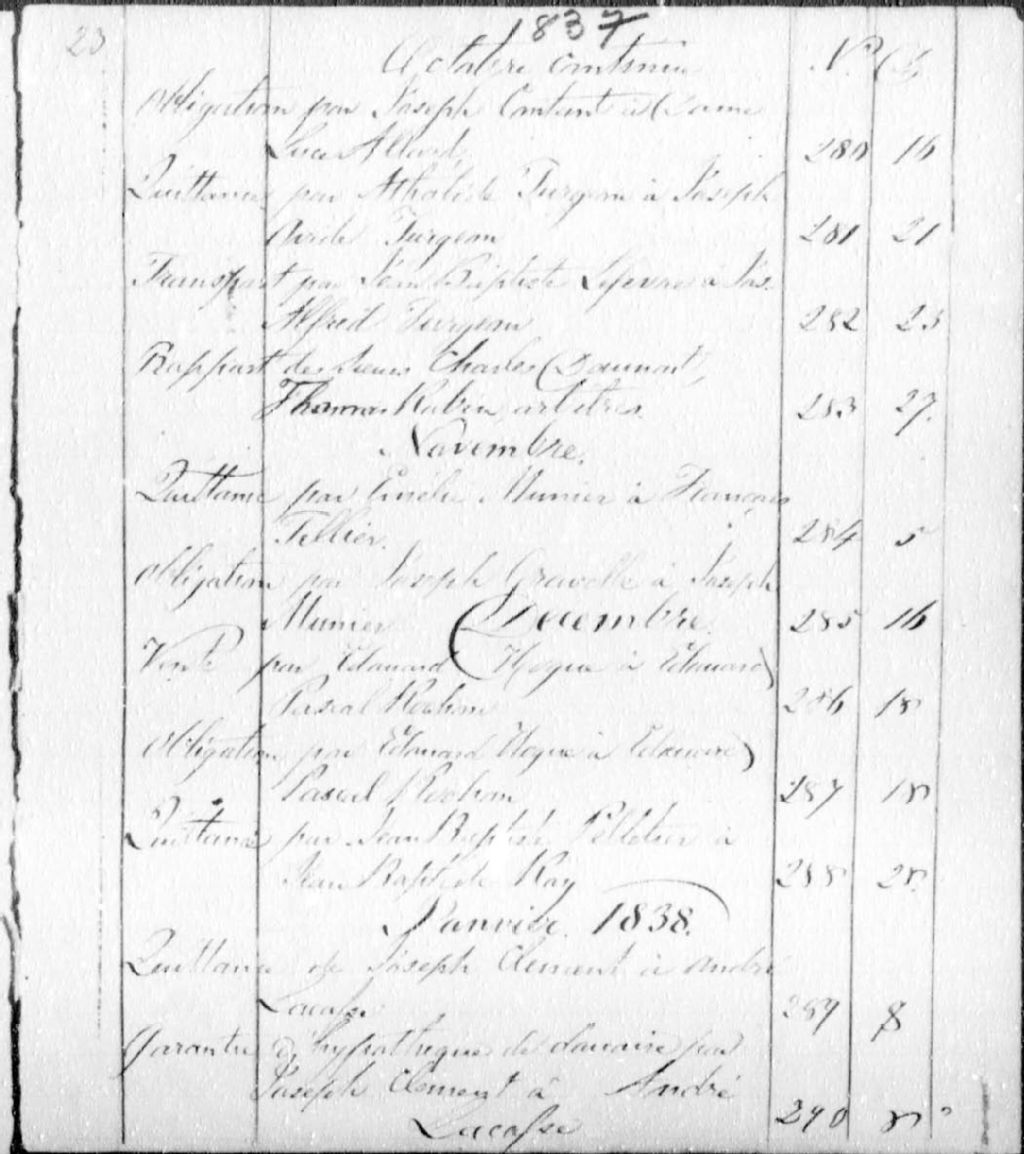 23
1837
Octobre continué No.
Obligation par Joseph Contant à Dame
Luce Allard 280 16
Quittance par Athalide Turgeon à Joseph
Ovide Turgeon 281 21
Transport par Jean Baptiste Lefevre à Jos.
Alfred Turgeon 282 23
Rapport des Sieurs Charles Daunant,
Thomas Rubin arbitres 283 27.
Novembre.
Quittance par Emélie Munier à François
Tellier. 284 5
Obligation par Joseph Gravelle à Joseph
Munier 285 16
Decembre.
Vente par Edouard Hogue à Edouard
Pascal Rochon 286 18
Obligation par Edouard Hogue à Edouard
Pascal Rochon 287 18
Quittance par Jean Baptiste Pelletier à
Jean Baptiste Ray 288 28.
Janvier. 1838.
Quittance de Joseph Clement à André
Lacasse 289 8
Garantie d'hypothèque de douaire par
Joseph Clement à André
Lacasse 290 8